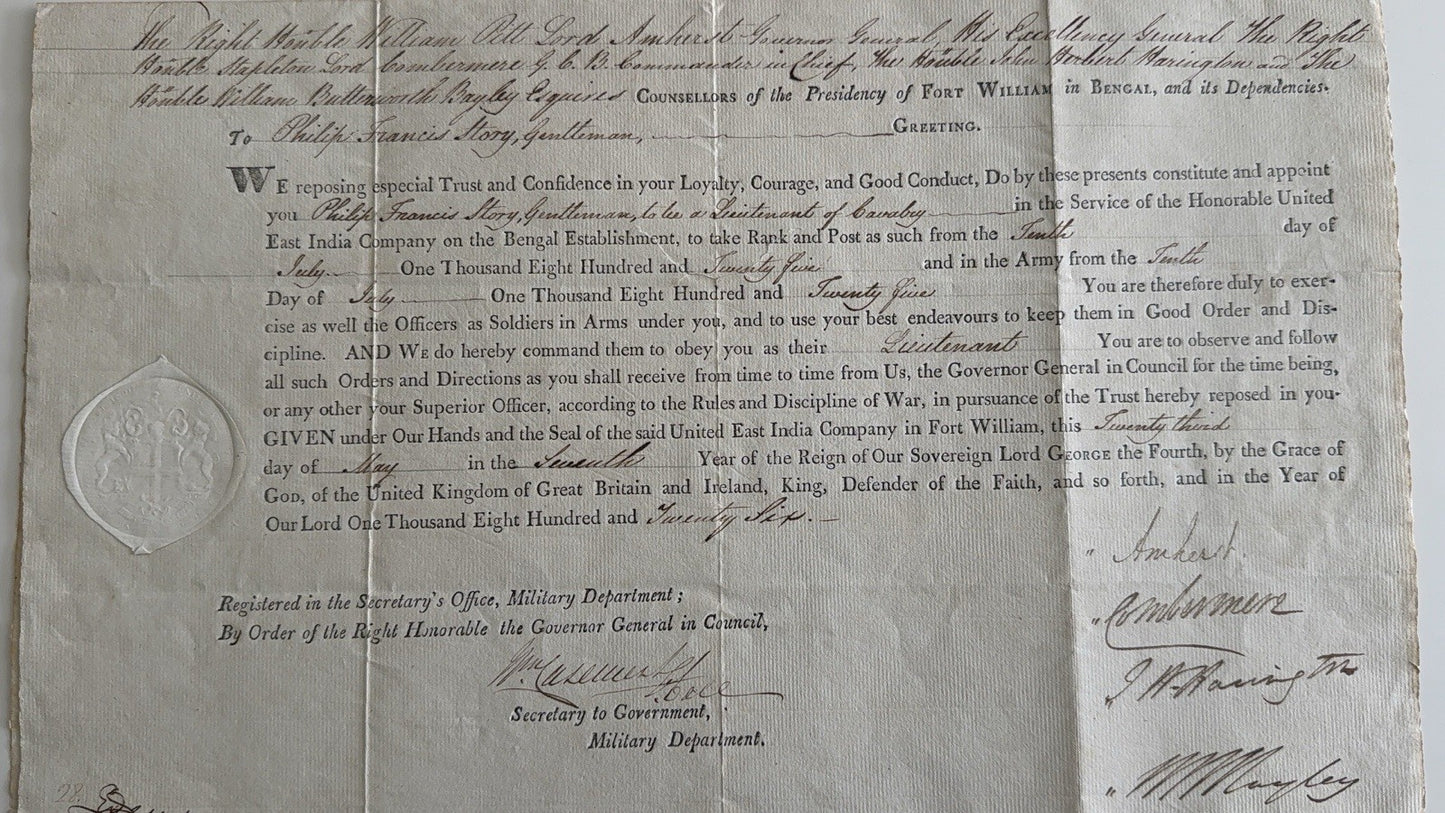 The Right Honble William Pitt Lord Amherst Governor General, His Excellency General The Right
Honble Stapleton Lord Combermere G. C. B. Commander in Chief, The Honble John Herbert Harington and The
Honble William Butterworth Bayley Esquires COUNSELLORS of the Presidency of FORT WILLIAM in BENGAL, and its Dependencies.
To Philip Francis Story, Gentleman, GREETING.
WE reposing especial Trust and Confidence in your Loyalty, Courage, and Good Conduct, Do by these presents constitute and appoint
you Philip Francis Story, Gentleman, to be a Lieutenant of Cavalry in the Service of the Honorable United
East India Company on the Bengal Establishment, to take Rank and Post as such from the Tenth day of
July One Thousand Eight Hundred and Twenty five and in the Army from the Tenth
Day of July One Thousand Eight Hundred and Twenty five You are therefore duly to exer-
cise as well the Officers as Soldiers in Arms under you, and to use your best endeavours to keep them in Good Order and Dis-
cipline. AND WE do hereby command them to obey you as their Lieutenant You are to observe and follow
all such Orders and Directions as you shall receive from time to time from Us, the Governor General in Council for the time being,
or any other your Superior Officer, according to the Rules and Discipline of War, in pursuance of the Trust hereby reposed in you.
GIVEN under Our Hands and the Seal of the said United East India Company in Fort William, this Twenty third
day of May in the Seventh Year of the Reign of Our Sovereign Lord GEORGE the Fourth, by the Grace of
GOD, of the United Kingdom of Great Britain and Ireland, King, Defender of the Faith, and so forth, and in the Year of
Our Lord One Thousand Eight Hundred and Twenty Six.
" Amherst.
" Combermere
" J H Harington
" W B Bayley
Registered in the Secretary's Office, Military Department;
By Order of the Right Honorable the Governor General in Council,
Wm Casement
Secretary to Government,
Military Department.
28.